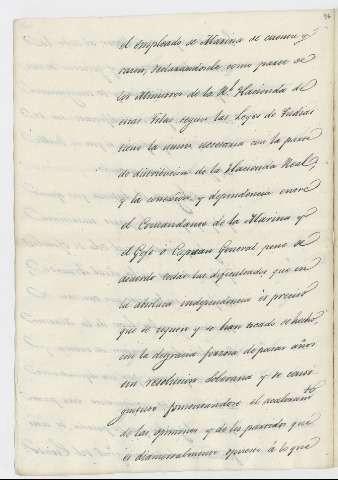 el empleado de Marina de cuenta y
razon, declarandosele como parte de
los Ministros de la Rl. Hacienda de
estas Yslas segun las Leyes de Yndias
tiene la union necesaria con la parte
de distribucion de la Hacienda Real,
y la conexion y dependencia entre
el Comandante de la Marina y
el Gefe ó Capitan General pone de
acuerdo todas las dificultades que en
la absoluta independencia es preciso
que se toquen y se han tocado de hecho,
con la desgracia forzosa de pasar años
sin resolucion Soberana y de consi
guiente fomentandose el
de las opiniones y de los partidos que
es diametralmente opuesto á lo que